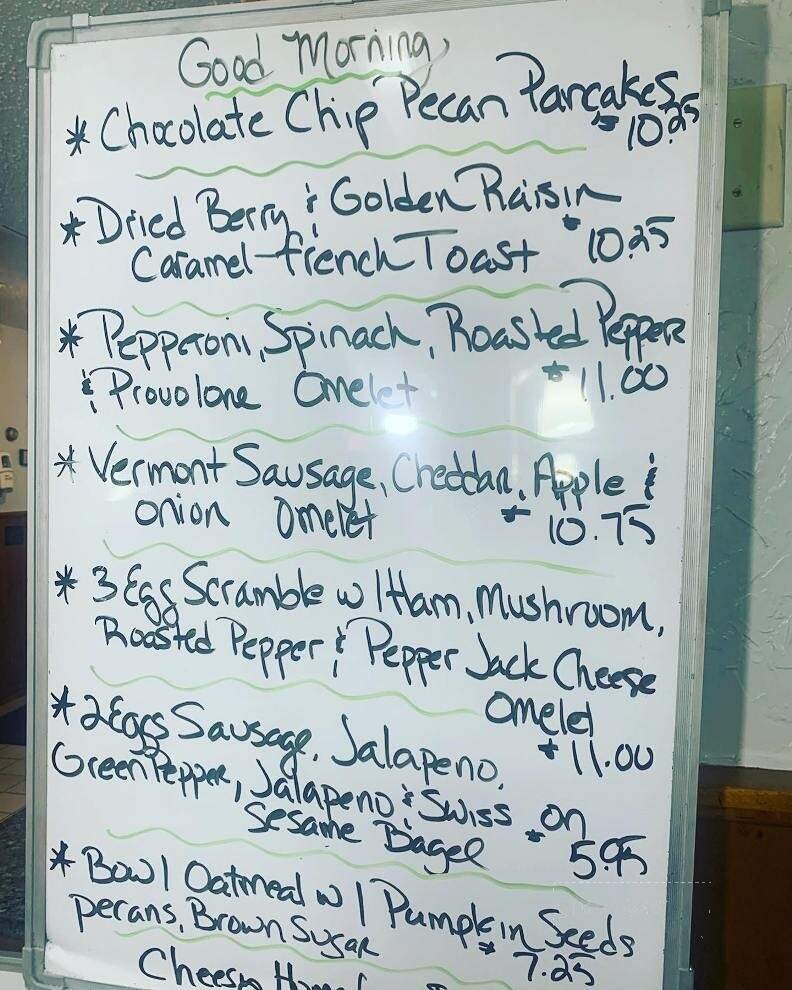 Good Morning
* Chocolate Chip Pecan Pancakes
$10.25
* Dried Berry & Golden Raisin
Caramel French Toast $10.25
* Pepperoni, Spinach, Roasted Pepper
& Provolone Omelet $11.00
* Vermont Sausage, Cheddar, Apple &
Onion Omelet $10.75
* 3 Egg Scramble w/Ham, Mushroom,
Roasted Pepper & Pepper Jack Cheese
Omelet
$11.00
* 2 Eggs Sausage, Jalapeno,
Green Pepper, Jalapeno & Swiss on
Sesame Bagel $5.95
* Bowl Oatmeal w/ Pumpkin Seeds
pecans, Brown Sugar $7.25